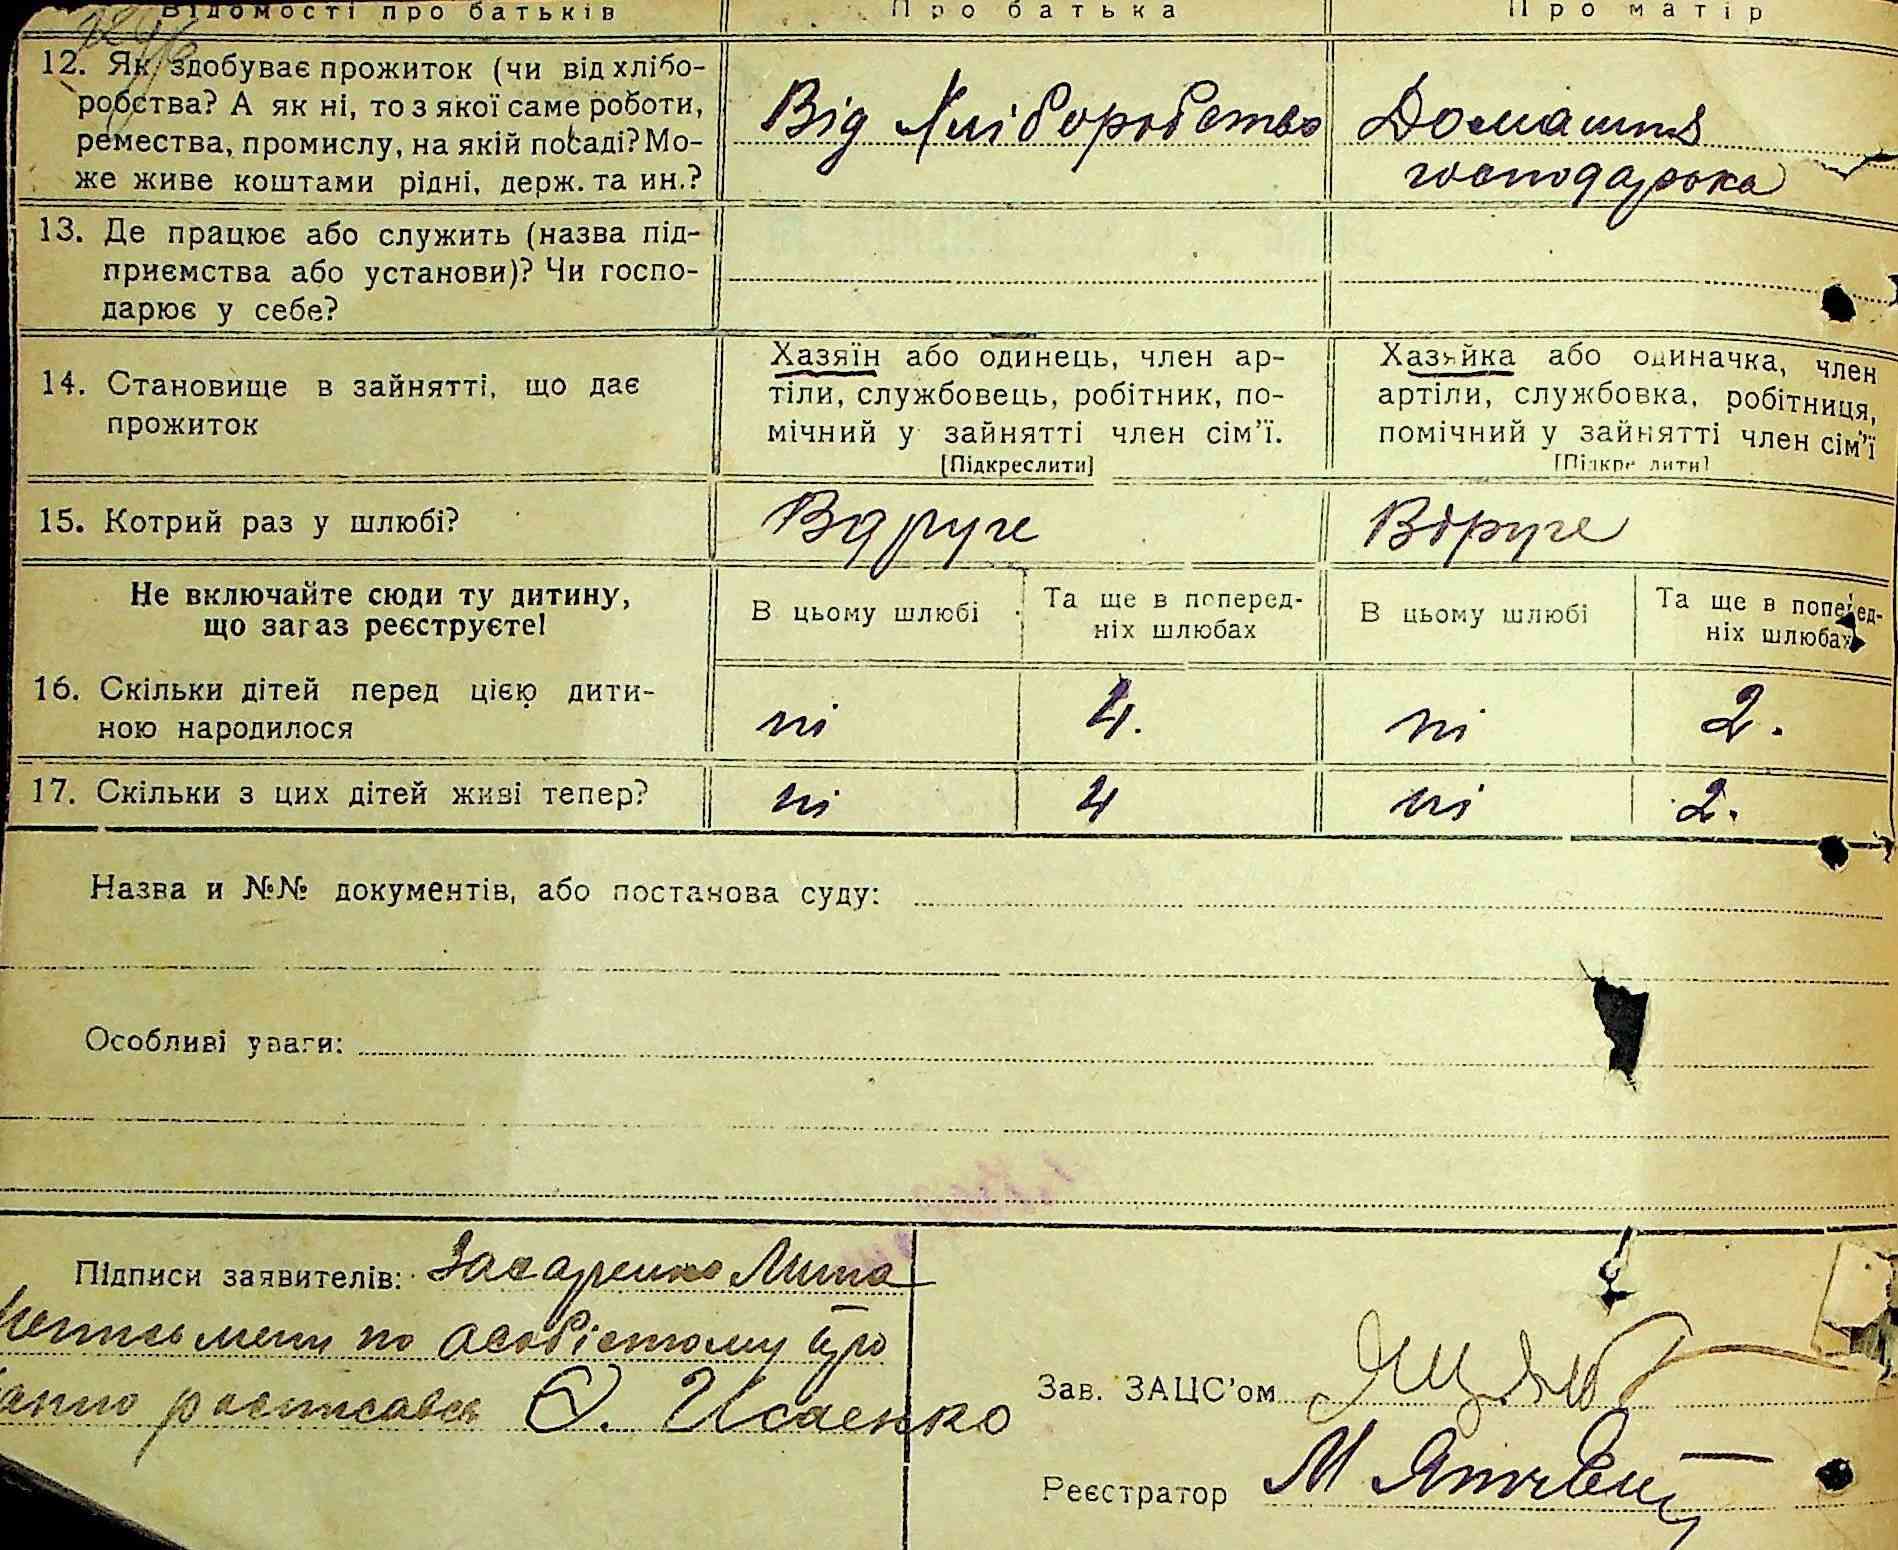 Відомості про батьків
Про батька
Про матір
12. Як здобуває прожиток (чи від хлібо-
робства? А як ні, то з якої саме роботи,
ремества, промислу, на якій посаді? Мо-
же живе коштами рідні, держ. та ин.?
Від Хліборобство
Домашня
господарка
13. Де працює або служить (назва під-
приємства або установи)? Чи госпо-
дарює у себе?
14. Становище в зайнятті, що дає
прожиток
Хазяїн або одинець, член ар-
тіли, службовець, робітник, по-
мічний у зайнятті член сім'ї.
[Підкреслити]
Хазяйка або одиначка, член
артіли, службовка, робітниця,
помічний у зайнятті член сім'ї
[Підкреслити]
15. Котрий раз у шлюбі?
Вдруге
Вдруге
Не включайте сюди ту дитину,
що зараз реєструєте!
В цьому шлюбі
Та ще в поперед-
ніх шлюбах
В цьому шлюбі
Та ще в поперед-
ніх шлюбах
16. Скільки дітей перед цією дити-
ною народилося
ні
4.
ні
2.
17. Скільки з цих дітей живі тепер?
ні
4
ні
2.
Назва и №№ документів, або постанова суду:
Особливі уваги:
Підписи заявителів: Захаренко
по особістому про
росписався Исаенко
Зав. ЗАЦС'ом
Реєстратор М